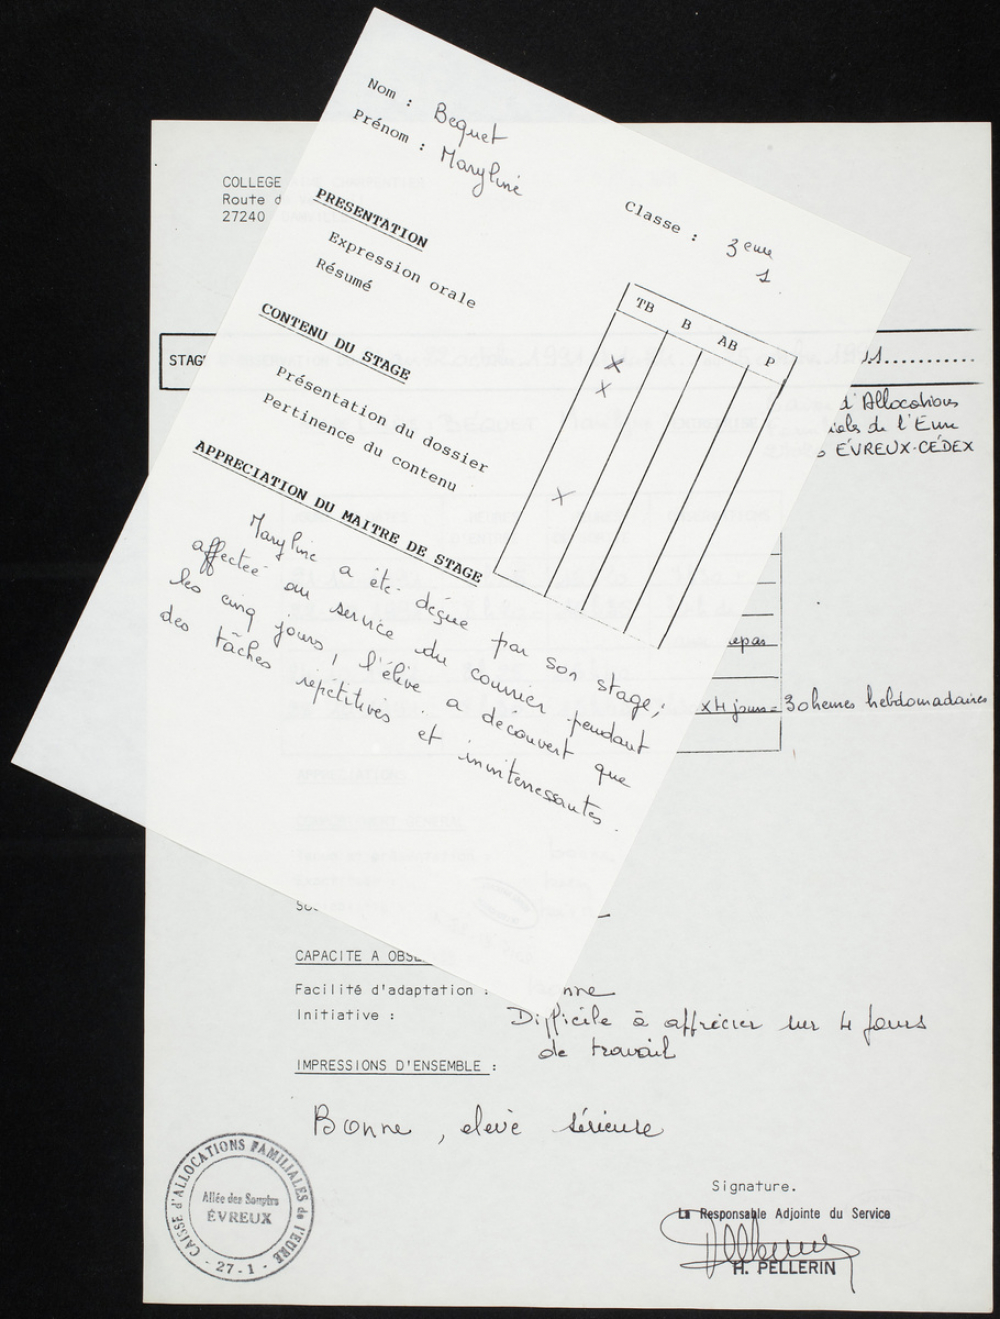 Nom : Bequet
Prénom : Maryline
Classe : 3eme
1
PRESENTATION
Expression orale
Résumé
TB B AB P
X
X
CONTENU DU STAGE
Présentation du dossier
Pertinence du contenu
X
APPRECIATION DU MAITRE DE STAGE
Maryline a été déçue par son stage;
affectée au service du courrier pendant
les cinq jours, l'élève a découvert que
des tâches répétitives et inintéressantes.
COLLEGE
Route d
27240
STAG
d'Allocations
iales de l'Eure
ÉVREUX-CEDEX
repas
x 4 jours = 30 heures hebdomadaires
CAPACITE A OBSE
Facilité d'adaptation : nne
Initiative : Difficile à apprécier sur 4 jours
de travail
IMPRESSIONS D'ENSEMBLE :
Bonne, elevè sérieuse
CAISSE d'ALLOCATIONS FAMILIALES de l'EURE
Allée des Soupirs
ÉVREUX
- 27-1 -
Signature.
La Responsable Adjointe du Service
H. PELLERIN